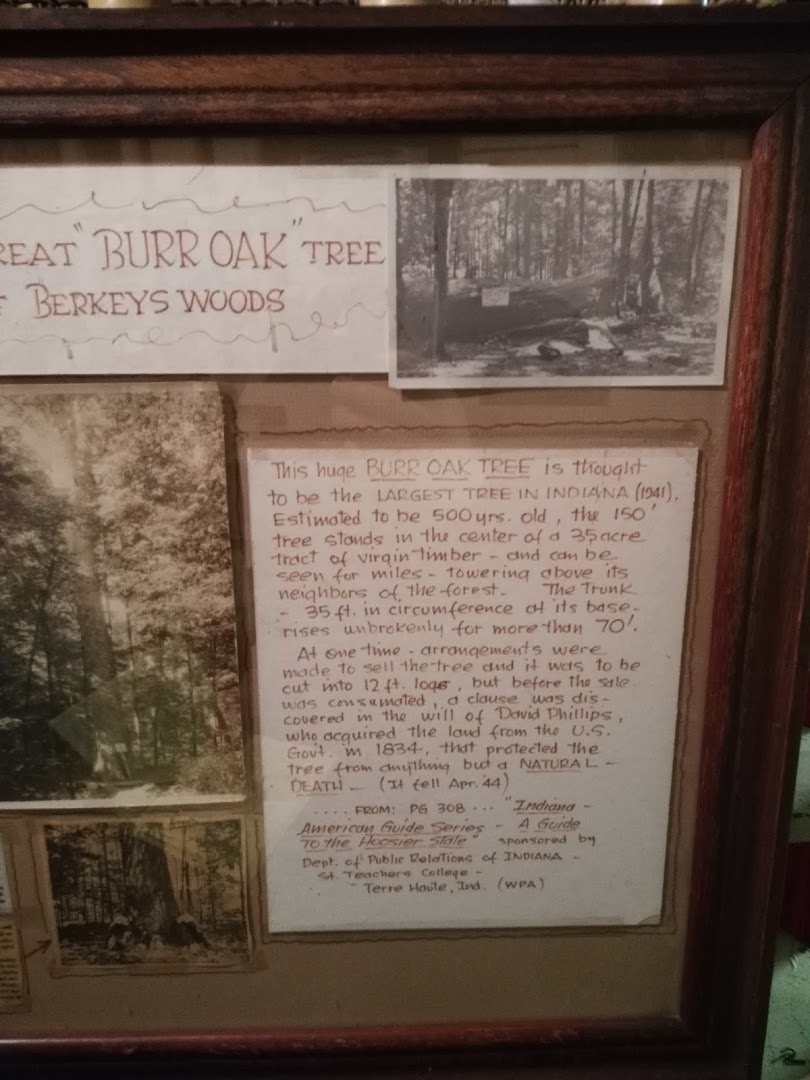 REAT "BURR OAK" TREE
F BERKEYS WOODS
This huge BURR OAK TREE is thought
to be the LARGEST TREE IN INDIANA (1941).
Estimated to be 500 yrs. old, the 150'
tree stands in the center of a 35 acre
tract of virgin timber - and can be
seen for miles - towering above its
neighbors of the forest. The Trunk
- 35 ft. in circumference at its base -
rises unbrokenly for more than 70'.
At one time - arrangements were
made to sell the tree and it was to be
cut into 12 ft. logs, but before the sale
was consumated, a clause was dis-
covered in the will of David Phillips,
who acquired the land from the U.S.
Govt. in 1834, that protected the
tree from anything but a NATURAL -
DEATH - (It fell Apr. 44)
.... FROM: PG 308 ... "Indiana -
American Guide Series - A Guide
To the Hoosier State" sponsored by
Dept. of Public Relations of INDIANA -
St. Teachers College -
Terre Haute, Ind. (WPA)